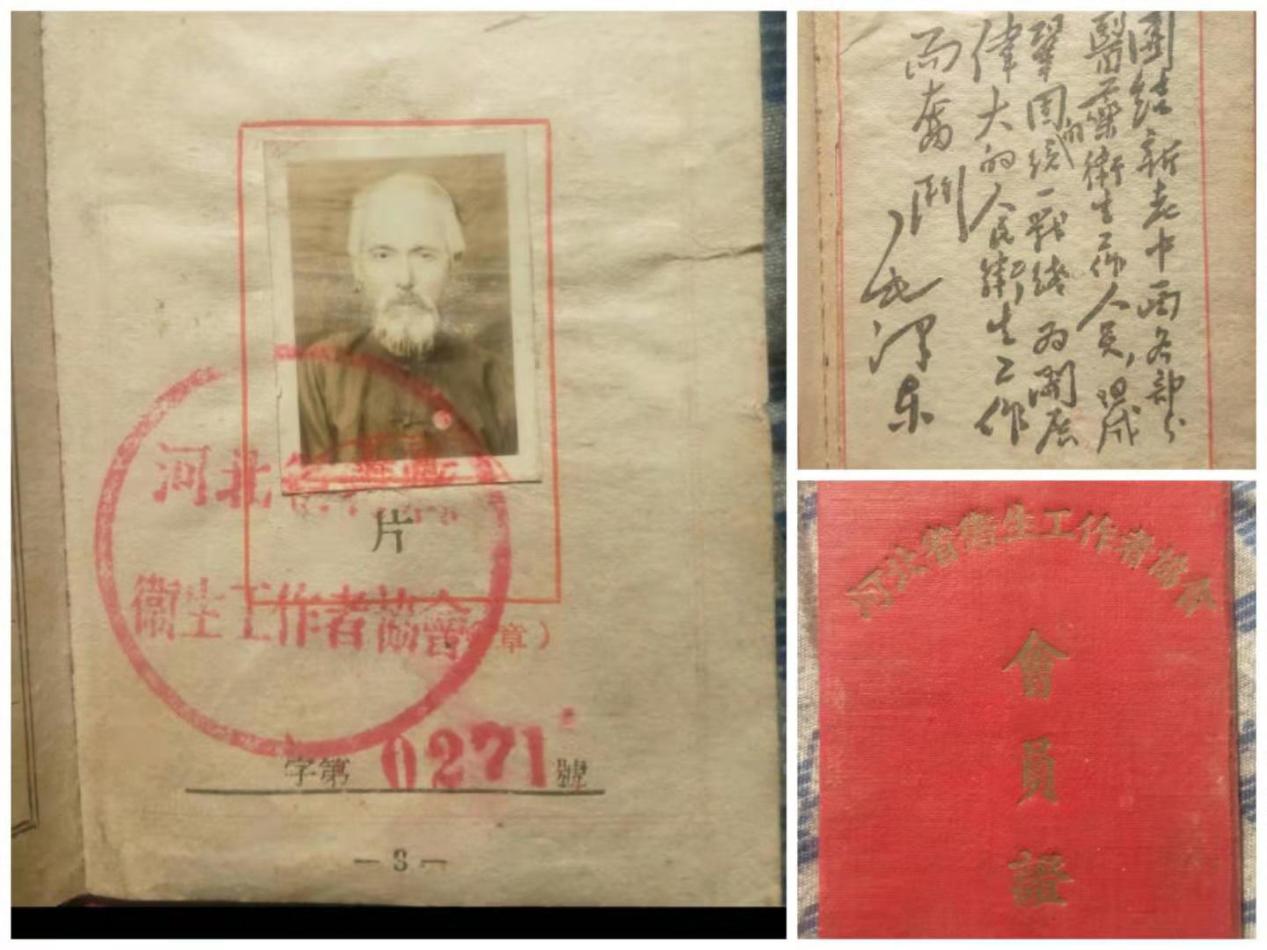 河北
片
衛生工作者協會
章）
字第 0271 號
團結新老中西各部分
醫藥衛生工作人員，組成
鞏固的統一戰綫 為開展
偉大的人民衛生工作
而奮鬥
毛澤东
河北省衛生工作者協會
會
員
證